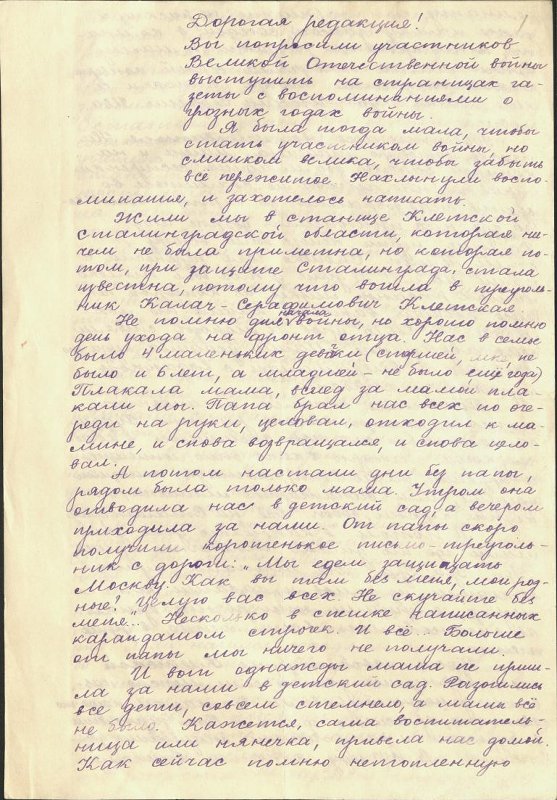 1
Дорогая редакция!
Вы попросили участников
Великой Отечественной войны
выступить на страницах га-
зеты с воспоминаниями о
грозных годах войны.
Я была тогда мала, чтобы
стать участником войны, но
слишком велика, чтобы забыть
всё пережитое. Нахлынули воспо-
минания, и захотелось написать.
Жили мы в станице Клетской
Сталинградской области, которая ни-
чем не была приметна, но которая по-
том, при защите Сталинграда, стала
известна, потому что вошла в треуголь-
ник Калач-Серафимович Клетская
начала
Не помню дня войны, но хорошо помню
день ухода на фронт отца. Нас в семье
было 4 маленьких девочки (старшей, мне, не
было и 6 лет, а младшей - не было ещё года)
Плакала мама, вслед за мамой пла-
кали мы. Папа брал нас всех по оче-
реди на руки, целовал, отходил к ма-
шине, и снова возвращался, и снова цело-
вал.
А потом настали дни без папы,
рядом была только мама. Утром она
отводила нас в детский сад, а вечером
приходила за нами. От папы скоро
получили коротенькое письмо-треуголь-
ник с дороги: „Мы едем защищать
Москву. Как вы там без меня, мои род-
ные? Целую вас всех. Не скучайте без
меня". Несколько в спешке написанных
карандашом строчек. И всё... Больше
от папы мы ничего не получали.
И вот однажды мама не приш-
ла за нами в детский сад. Разошлись
все дети, совсем стемнело, а мамы всё
не было. Кажется, сама воспитатель-
ница или нянечка, привела нас домой.
Как сейчас помню нетопленную